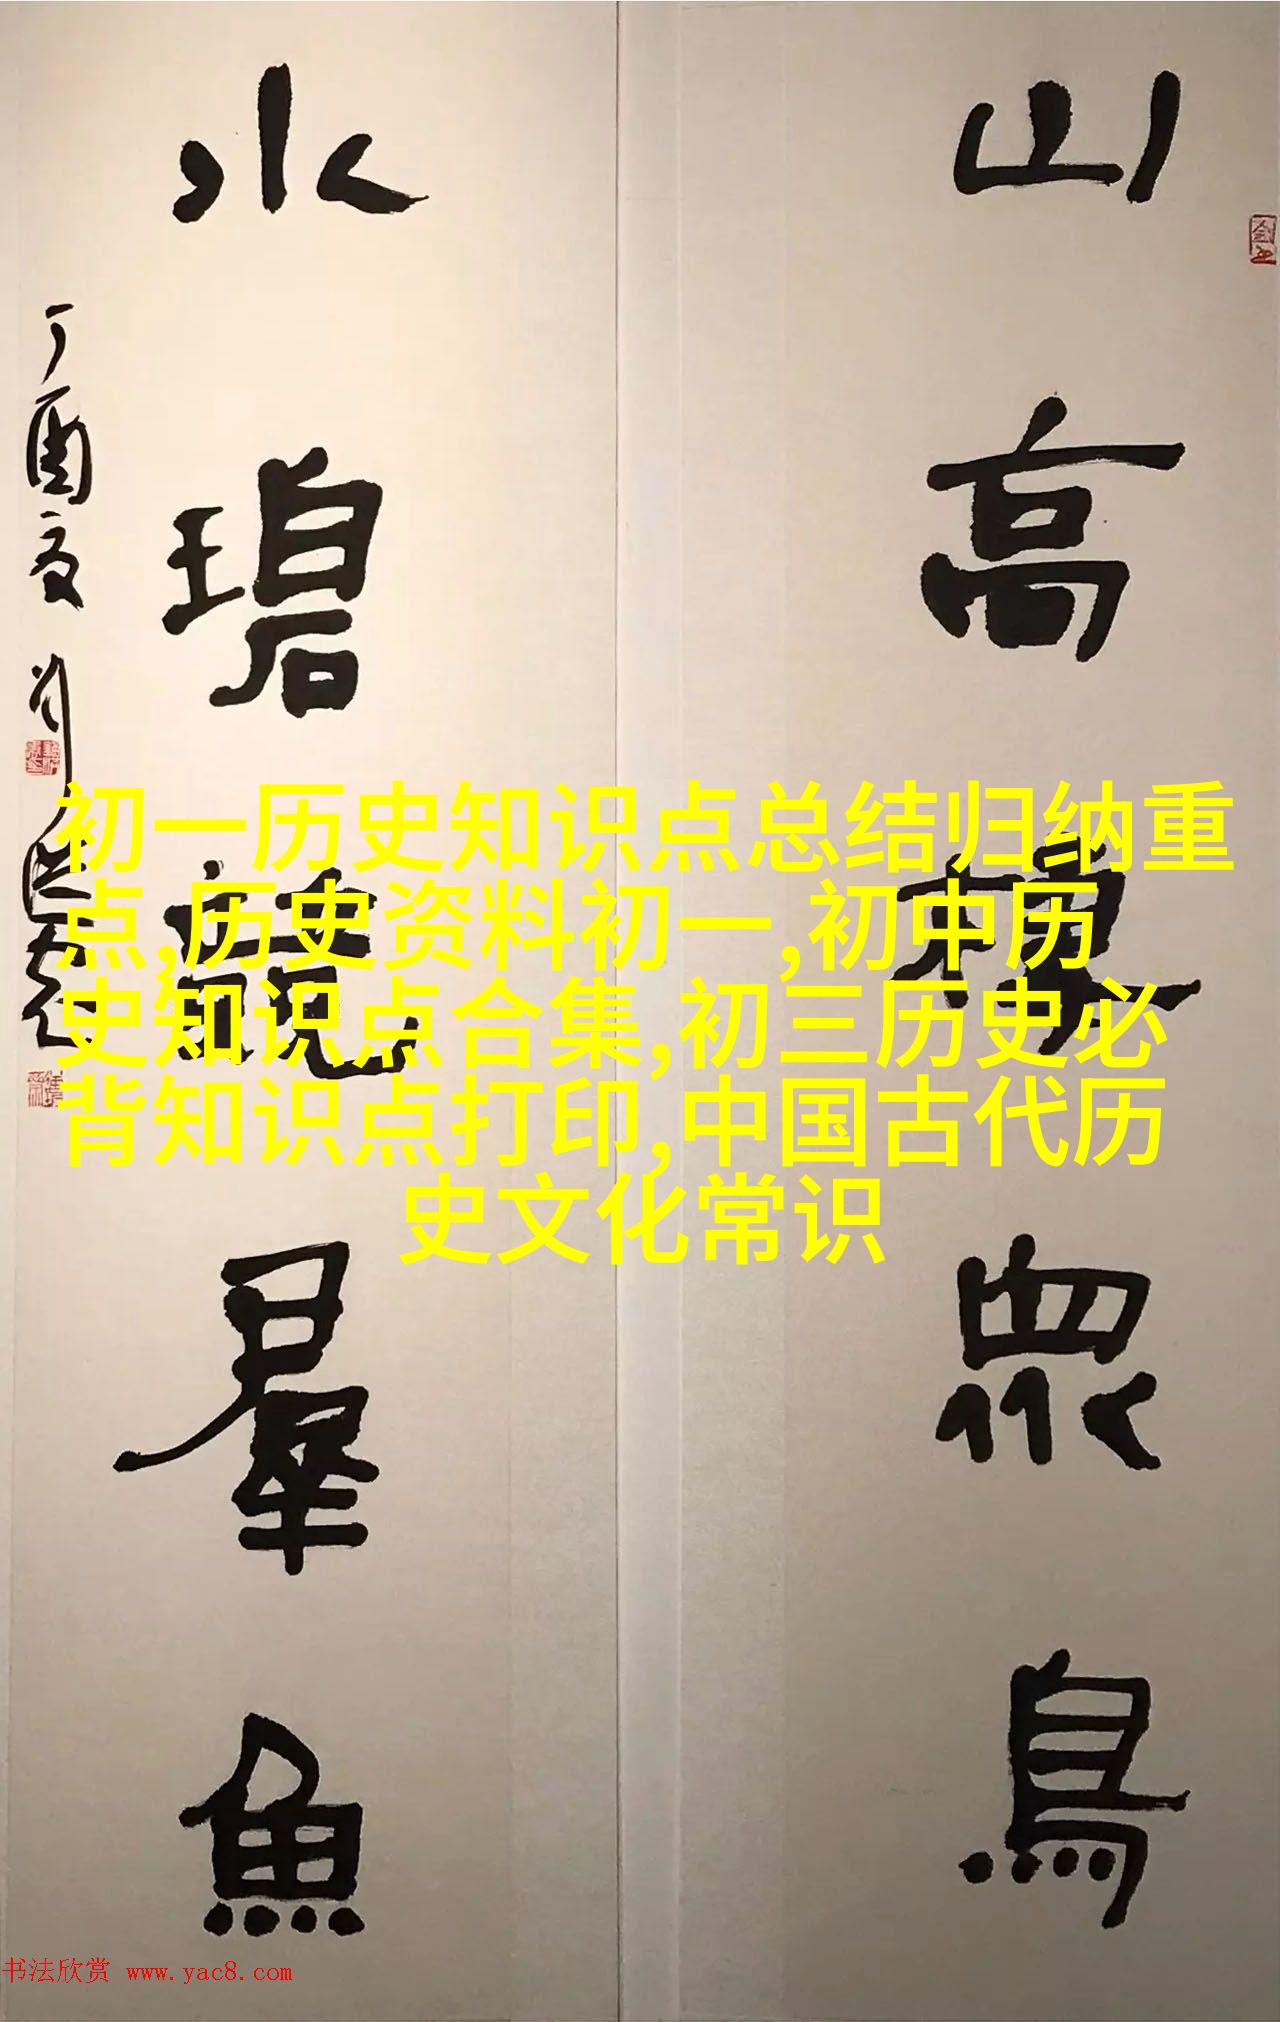 山高棲眾鳥
水碧競羣魚
丁酉夏
初一历史知识点总结归纳重
点,历史资料初一,初中历
史知识点合集,初三历史必
背知识点打印,中国古代历
史文化常识
书法欣赏 www.yac8.com